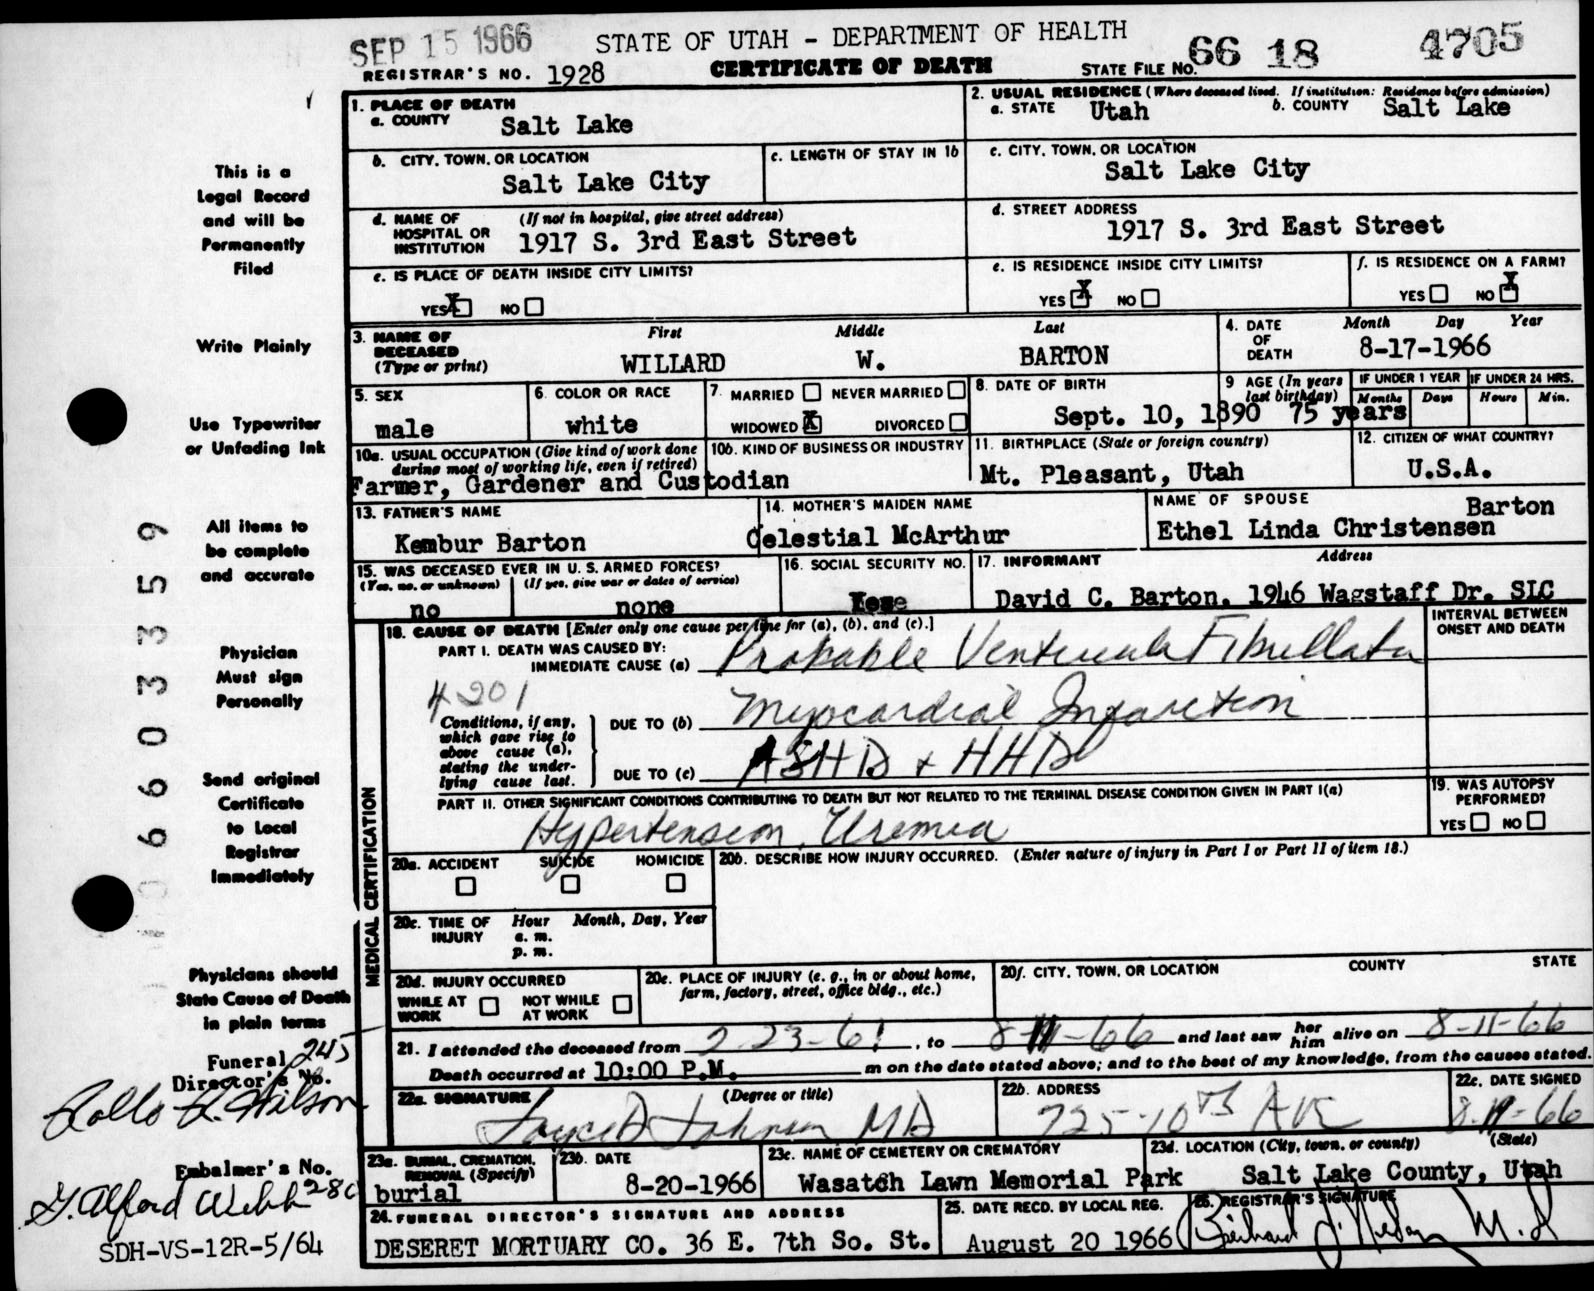 SEP 15 1966
STATE OF UTAH - DEPARTMENT OF HEALTH
66 18 4705
REGISTRAR'S NO. 1928
CERTIFICATE OF DEATH
STATE FILE NO.
1. PLACE OF DEATH
a. COUNTY Salt Lake
2. USUAL RESIDENCE (Where deceased lived. If institution: Residence before admission)
a. STATE Utah b. COUNTY Salt Lake
b. CITY, TOWN, OR LOCATION
Salt Lake City
c. LENGTH OF STAY IN 1b
c. CITY, TOWN, OR LOCATION
Salt Lake City
d. NAME OF HOSPITAL OR INSTITUTION (If not in hospital, give street address)
1917 S. 3rd East Street
d. STREET ADDRESS
1917 S. 3rd East Street
e. IS PLACE OF DEATH INSIDE CITY LIMITS?
YES X NO
e. IS RESIDENCE INSIDE CITY LIMITS?
YES X NO
f. IS RESIDENCE ON A FARM?
YES NO X
3. NAME OF DECEASED (Type or print)
First Middle Last
WILLARD W. BARTON
4. DATE OF DEATH Month Day Year
8-17-1966
5. SEX
male
6. COLOR OR RACE
white
7. MARRIED NEVER MARRIED
WIDOWED X DIVORCED
8. DATE OF BIRTH
Sept. 10, 1890
9 AGE (In years last birthday)
75 years
IF UNDER 1 YEAR IF UNDER 24 HRS.
Months Days Hours Min.
10a. USUAL OCCUPATION (Give kind of work done during most of working life, even if retired)
Farmer, Gardener and Custodian
10b. KIND OF BUSINESS OR INDUSTRY
11. BIRTHPLACE (State or foreign country)
Mt. Pleasant, Utah
12. CITIZEN OF WHAT COUNTRY?
U.S.A.
13. FATHER'S NAME
Kembur Barton
14. MOTHER'S MAIDEN NAME
Celestial McArthur
NAME OF SPOUSE Barton
Ethel Linda Christensen
15. WAS DECEASED EVER IN U. S. ARMED FORCES?
(Yes, no, or unknown) (If yes, give war or dates of service)
no none
16. SOCIAL SECURITY NO.
17. INFORMANT Address
David C. Barton, 1946 Wagstaff Dr. SLC
18. CAUSE OF DEATH [Enter only one cause per line for (a), (b), and (c).]
INTERVAL BETWEEN ONSET AND DEATH
PART I. DEATH WAS CAUSED BY:
IMMEDIATE CAUSE (a) Probable Ventricular Fibrillation
4201
Conditions, if any, which gave rise to above cause (a), stating the underlying cause last.
DUE TO (b) Myocardial Infarction
DUE TO (c) ASHD + HHD
PART II. OTHER SIGNIFICANT CONDITIONS CONTRIBUTING TO DEATH BUT NOT RELATED TO THE TERMINAL DISEASE CONDITION GIVEN IN PART I(a)
Hypertension, Uremia
19. WAS AUTOPSY PERFORMED?
YES NO
MEDICAL CERTIFICATION
20a. ACCIDENT SUICIDE HOMICIDE
20b. DESCRIBE HOW INJURY OCCURRED. (Enter nature of injury in Part I or Part II of item 18.)
20c. TIME OF INJURY Hour Month, Day, Year
a. m.
p. m.
20d. INJURY OCCURRED
WHILE AT WORK NOT WHILE AT WORK
20e. PLACE OF INJURY (e. g., in or about home, farm, factory, street, office bldg., etc.)
20f. CITY, TOWN, OR LOCATION COUNTY STATE
21. I attended the deceased from 2-23-61, to 8-11-66 and last saw her him alive on 8-11-66
Death occurred at 10:00 P.M. m on the date stated above; and to the best of my knowledge, from the causes stated.
22a. SIGNATURE (Degree or title)
Johnson MD
22b. ADDRESS
725-10th Ave
22c. DATE SIGNED
66
23a. BURIAL, CREMATION, REMOVAL (Specify)
burial
23b. DATE
8-20-1966
23c. NAME OF CEMETERY OR CREMATORY
Wasatch Lawn Memorial Park
23d. LOCATION (City, town, or county) (State)
Salt Lake County, Utah
24. FUNERAL DIRECTOR'S SIGNATURE AND ADDRESS
DESERET MORTUARY CO. 36 E. 7th So. St.
25. DATE RECD. BY LOCAL REG.
August 20 1966
26. REGISTRAR'S SIGNATURE
M.D
This is a
Legal Record
and will be
Permanently
Filed
Write Plainly
Use Typewriter
or Unfading Ink
All items to
be complete
and accurate
Physician
Must sign
Personally
Send original
Certificate
to Local
Registrar
Immediately
Physicians should
State Cause of Death
in plain terms
Funeral 245
Director's No.
Rollo R. Wilson
Embalmer's No.
G. Alford Webb 280
SDH-VS-12R-5/64
6 6 0 3 3 5 9